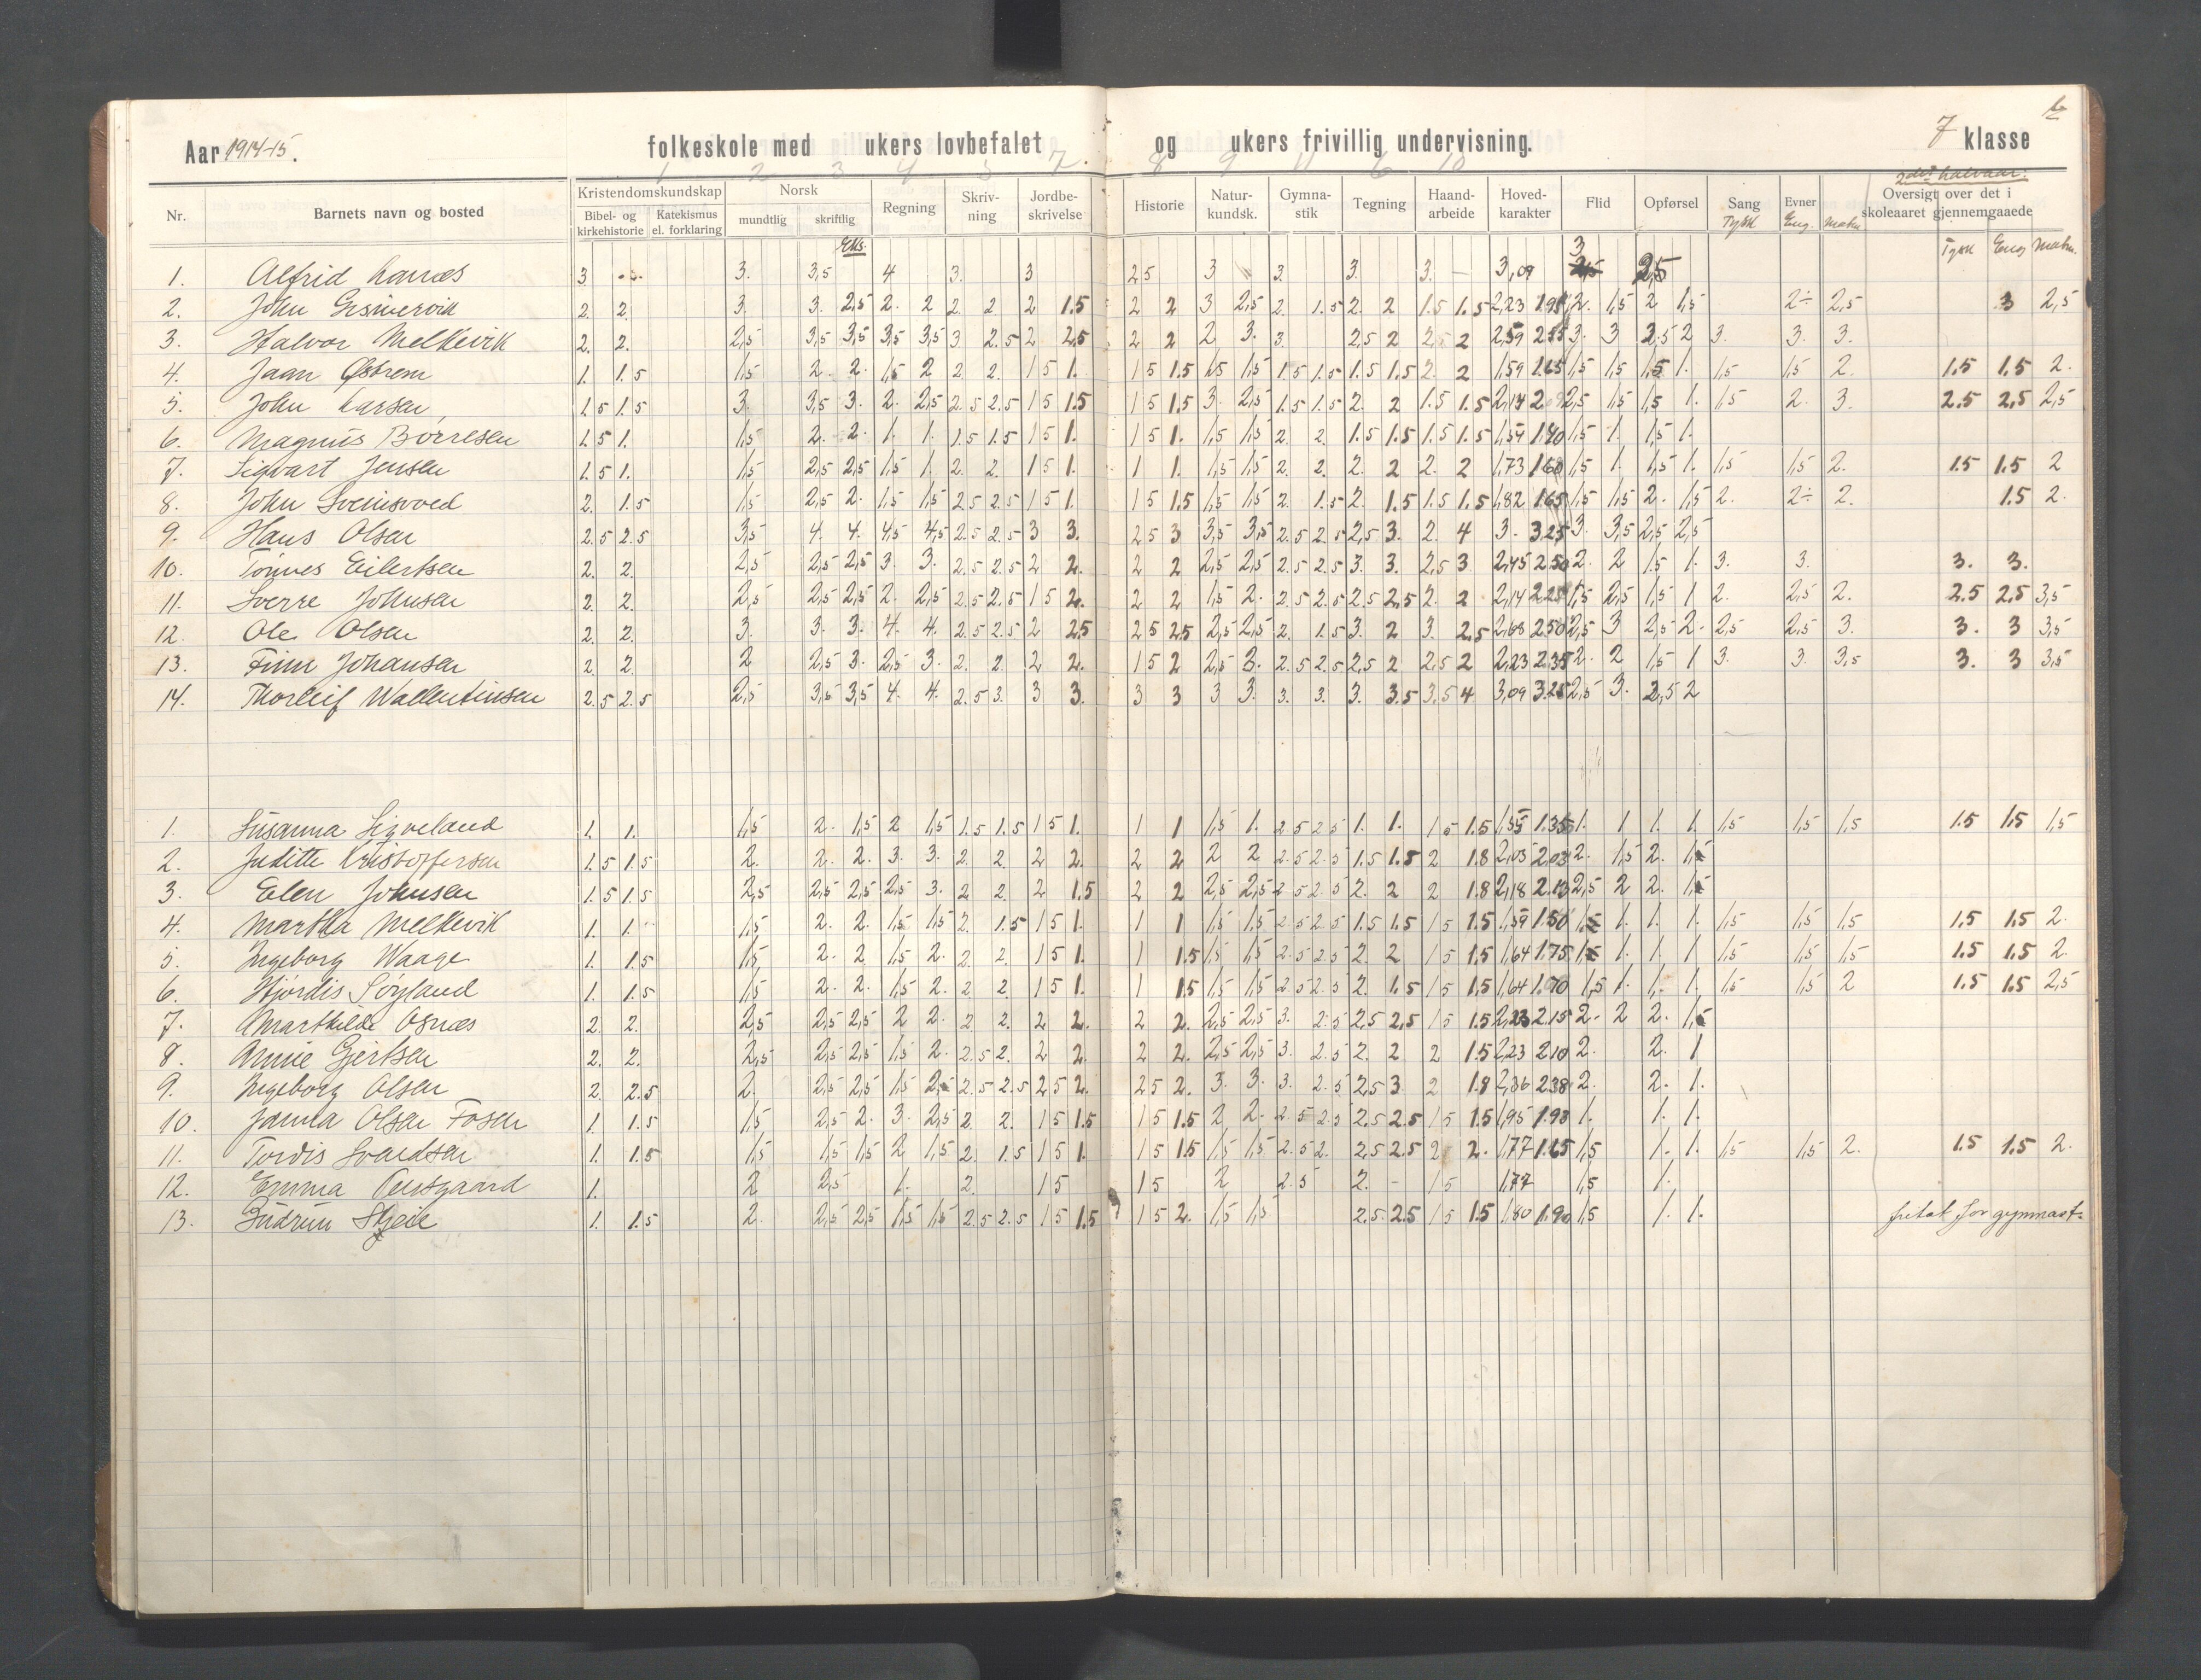 Aar 1914-15. folkeskole med ukers lovbefalet og ukers frivillig undervisning. 7 klasse b
1 2 3 4 5 7. 8 9 11 6 10
2det halvaar.
Nr. Barnets navn og bosted Kristendomskundskap Norsk Regning Skriv-ning Jordbe-skrivelse Historie Natur-kundsk. Gymna-stik Tegning Haand-arbeide Hoved-karakter Flid Opførsel Sang Evner Oversigt over det i skoleaaret gjennemgaaede
Bibel- og kirkehistorie Katekismus el. forklaring mundtlig skriftlig Tysk Eng. Matm.
Tysk Eng Matm.
1. Alfrid 3 3. 3,5 4 3. 3 2 5 3 3. 3. 3. 3,09 3 2,5
2. John 2. 2. 3. 3. 2,5 2. 2 2. 2. 2 1.5 2 2 3 2,5 2. 1.5 2. 2 1.5 1.5 2,23 1.95 2. 1,5 2 1,5 2÷ 2,5 3 2,5
3. Halvor Melkevik 2. 2. 2,5 3,5 3,5 3,5 3,5 3 2.5 2 2,5 2 2 2 3. 3. 2,5 2 2,5 2 2,59 2.55 3. 3 2.5 2 3. 3. 3.
4. Jaan Østrem 1. 1.5 1,5 2. 2. 1,5 2 2. 2. 1 5 1. 1 5 1.5 1,5 1,5 1.5 1.5 1.5 1.5 2. 2 1,59 1.65 1,5 1,5 1,5 1. 1,5 1,5 2. 1.5 1.5 2.
5. John Larsen 1.5 1.5 3. 3,5 3. 2. 2,5 2.5 2.5 1 5 1.5 1 5 1.5 3. 2,5 1.5 1.5 2. 2 1.5 1.5 2,14 2,5 1,5 1,5 1. 1,5 2. 3. 2.5 2,5 2,5
6. Magnus Børresen 1.5 1. 1,5 2. 2. 1. 1. 1.5 1.5 1 5 1. 1 5 1. 1,5 1,5 2. 2. 1.5 1.5 1.5 1.5 1,54 1.40 1,5 1. 1,5 1.
7. Sigvart Jensen 1.5 1. 1,5 2,5 2,5 1,5 1. 2. 2. 1 5 1. 1 1. 1,5 1,5 2. 2. 2. 2 2. 2 1,73 1.60 1,5 1. 1,5 1. 1,5 1,5 2. 1.5 1.5 2
8. John 2. 1.5 1,5 2,5 2. 1,5 1,5 2.5 2.5 1 5 1. 1 5 1.5 1,5 1,5 2. 1.5 2. 1.5 1.5 1.5 1,82 1.65 1,5 1,5 2. 1,5 2. 2÷ 2. 1.5 2.
9. Hans Olsen 2.5 2.5 3,5 4. 4. 4,5 4,5 2.5 2.5 3 3. 2 5 3 3,5 3,5 2.5 2.5 2,5 3. 2. 4 3. 3.25 3. 3,5 2,5 2,5
10. Tønnes Eilertsen 2. 2. 2,5 2,5 2,5 3. 3. 2.5 2.5 2 2. 2 2 2,5 2,5 2.5 2.5 3. 3. 2.5 3 2,45 2.50 2. 2 1,5 1. 3. 3. 3. 3.
11. Sverre Johnsen 2. 2. 2,5 2,5 2,5 2. 2,5 2.5 2.5 1 5 2. 2 2 1,5 2. 2.5 2.5 2.5 2,5 2. 2 2,14 2.25 1,5 2,5 1,5 1 2. 2,5 2. 2.5 2,5 3,5
12. Ole Olsen 2. 2. 3. 3. 3. 4. 4. 2.5 2.5 2 2.5 2 5 2.5 2,5 2,5 2. 1.5 3. 2 3. 2.5 2,68 2.50 2,5 3 2,5 2. 2,5 2,5 3. 3. 3 3,5
13. Finn Johansen 2. 2. 2 2,5 3. 2,5 3. 2. 2. 2 2. 1 5 2 2,5 3. 2.5 2.5 2,5 2 2,5 2 2,23 2.35 2. 2 1,5 1 3. 3. 3,5 3. 3 3,5
14. Thorleif Wallentinsen 2.5 2.5 2,5 3,5 3,5 4. 4. 2.5 3. 3 3. 3 3 3 3. 3. 3. 3. 3.5 3.5 4 3,09 3.25 2,5 3. 2,5 2
1. Susanna Sigveland 1. 1. 1,5 2. 1,5 2 1,5 1.5 1.5 1 5 1. 1 1 1,5 1. 2 5 2 5 1. 1. 1 5 1.5 1,55 1.35 1. 1 1. 1. 1,5 1,5 1,5 1.5 1,5 1,5
2. Judith Kristoffersen 1.5 1.5 2. 2. 2. 3. 3. 2. 2. 2 2. 2 2 2 2 2.5 2.5 1.5 1.5 2 1.8 2,05 2.03 2. 1,5 2.
3. Elen Johnsen 1.5 1.5 2,5 2,5 2,5 2,5 3. 2 2. 2 1.5 2 2 2,5 2,5 2 5 2 5 2. 2 2 1.8 2,18 2.13 2,5 2 2.
4. Martha Melkevik 1. 1. 1,5 2. 2. 1,5 1,5 2. 1.5 1 5 1. 1 1 1,5 1,5 2.5 2 5 1.5 1.5 1 5 1.5 1,59 1.50 1. 1. 1. 1,5 1,5 1,5 1,5 1.5 2.
5. Ingeborg Waage 1. 1.5 1,5 2. 2 1,5 2. 2. 2. 1 5 1. 1 1.5 1,5 1,5 2.5 2 5 2. 2 1 5 1.5 1,64 1.75 1. 1. 1 1,5 1,5 1,5 1.5 1.5 2.
6. Hjørdis Søyland 1. 1.5 1,5 2. 2. 1,5 2. 2 2. 1 5 1. 1 1.5 1,5 1,5 2 5 2. 5 2. 1.5 1 5 1.5 1,64 1.70 1,5 1. 1. 1. 1,5 1,5 2 1.5 1.5 2,5
7. Marthilde Osnæs 2. 2. 2,5 2,5 2,5 2 2. 2 2. 2 2. 2 2. 2,5 2,5 3. 2.5 2.5 2,5 1 5 1.5 2,23 2.15 2. 2 2.
8. Annie Gjertsen 2. 2. 2,5 2,5 2,5 1,5 2. 2.5 2. 2 2. 2 2. 2,5 2,5 3. 2.5 2. 2 2 1.5 2,23 2.10 2. 2. 1
9. Ingeborg Olsen 2. 2.5 2. 2,5 2,5 1,5 2. 2.5 2.5 2 5 2. 2 5 2. 3. 3. 3. 2.5 2.5 3. 2 1.8 2,36 2.38 2. 2. 1.
10. Janna Olsen Fosen 1. 1.5 1,5 2,5 2. 3. 2,5 2. 2. 1 5 1.5 1 5 1.5 2 2. 2.5 2.5 2.5 2.5 1 5 1.5 1,95 1.93 1. 1. 1.
11. Tordis Svendsen 1. 1.5 1,5 1,5 1,5 2 1,5 2. 1.5 1 5 1. 1 5 1.5 1,5 1,5 2.5 2. 2.5 2.5 2 2. 1,77 1.65 1,5 1. 1. 1,5 1,5 2. 1.5 1.5 2.
12. Emma 1. 2 2,5 1. 2. 1 5 1 5 2 2.5 2. - 1 5 1,77 1,5 1.
13. Gudrun Skeie 1. 1.5 2. 2,5 2,5 1,5 1,5 2.5 2.5 1 5 1.5 1 5 2. 1,5 1,5 2.5 2.5 1 5 1.5 1,80 1.90 1,5 1. 1. fritat for gymnast.